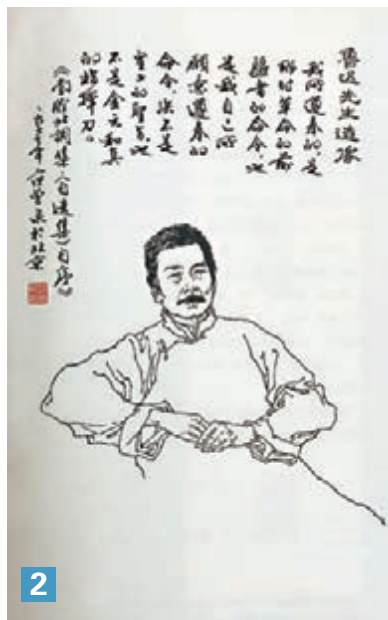 鲁迅先生造像
我所遵奉的,是
那时革命的前
驱者的命令,也
是我自己所
愿意遵奉的
命令,决不是
皇上的圣旨,也
不是金元和真
的指挥刀。
《南腔北调集《自选集》自序》
年 于北京
2